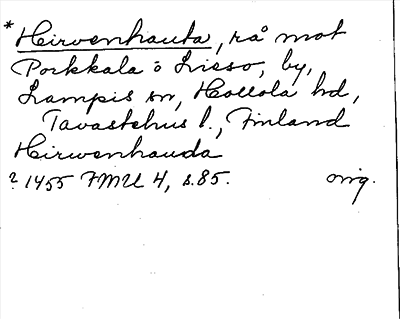 * Hirvenhauta, rå mot
Porkkala o Lieso, by,
Lampis sn, Hollola hd,
Tavastehus l., Finland
Hirwenhauda
? 1455 FMU 4, s. 85. orig.